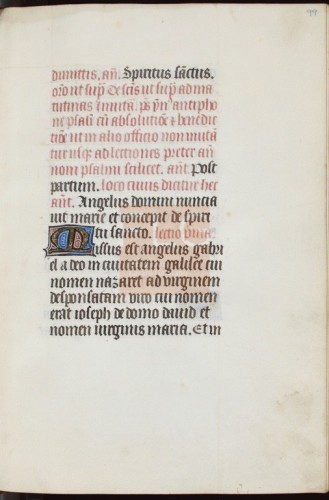 dimittis. an̄. Spiritus sanctus.
or̄o ut sup̄. De sc̄is ut sup̄ ad ma
tutinas inuita. p̄s ym̄ antipho
ne psalmi cum absolutiōe ⁊ benedic
tiōe ut in alio officio non mutā
tur usq̄ ad lectiones preter an̄
nom psalmi scilicet. ant̄. Post
partum. loco cuius dicitur hec
ant̄. Angelus domini nuncia
uit marie et concepit de spiri
tu sancto. lectio prima.
Missus est angelus gabri
el a deo in ciuitatem galilee cui
nomen nazaret ad virginem
desponsatam viro cui nomen
erat ioseph de domo dauid et
nomen uirginis maria. Et in